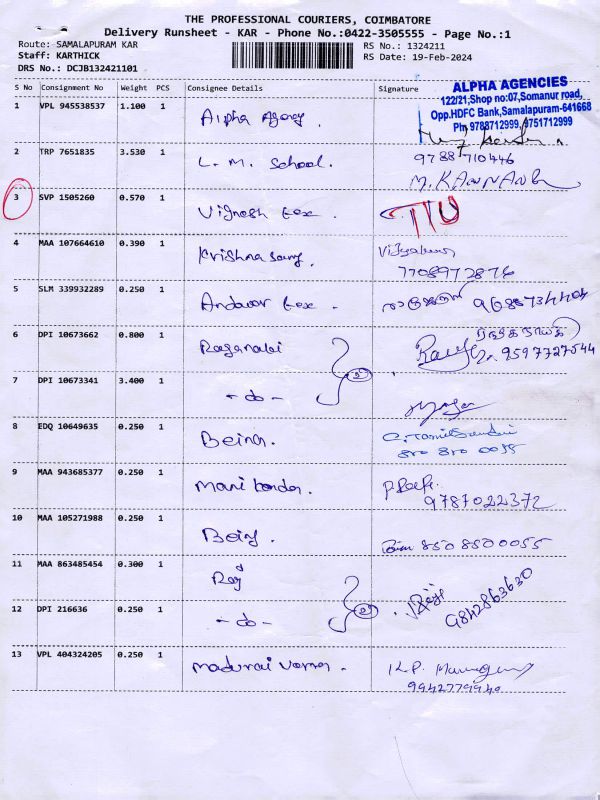 THE PROFESSIONAL COURIERS, COIMBATORE
Delivery Runsheet - KAR - Phone No.:0422-3505555 - Page No.:1
Route: SAMALAPURAM KAR
Staff: KARTHICK
DRS No.: DCJB132421101
RS No.: 1324211
RS Date: 19-Feb-2024
S No Consignment No Weight PCS Consignee Details Signature
ALPHA AGENCIES
122/21,Shop no:07,Somanur road,
Opp.HDFC Bank,Samalapuram-641668
Ph: 9788712999, 9751712999
1 VPL 945538537 1.100 1 Alpha Agency.
2 TRP 7651835 3.530 1 L. M. School. 9788710446
M. KANNAN
3 SVP 1505260 0.570 1 Vignesh tex.
4 MAA 107664610 0.390 1 Krishna
7708972876
5 SLM 339932289 0.250 1 Andavar tex.
6 DPI 10673662 0.800 1 9597727544
7 DPI 10673341 3.400 1 - do - 2
8 EDQ 10649635 0.250 1
850 850 0055
9 MAA 943685377 0.250 1 Mani
9787022372
10 MAA 105271988 0.250 1 850 8500055
11 MAA 863485454 0.300 1 Raj
9842863630
12 DPI 216636 0.250 1 - do - 2
13 VPL 404324205 0.250 1 Madurai K.P.
9942779940